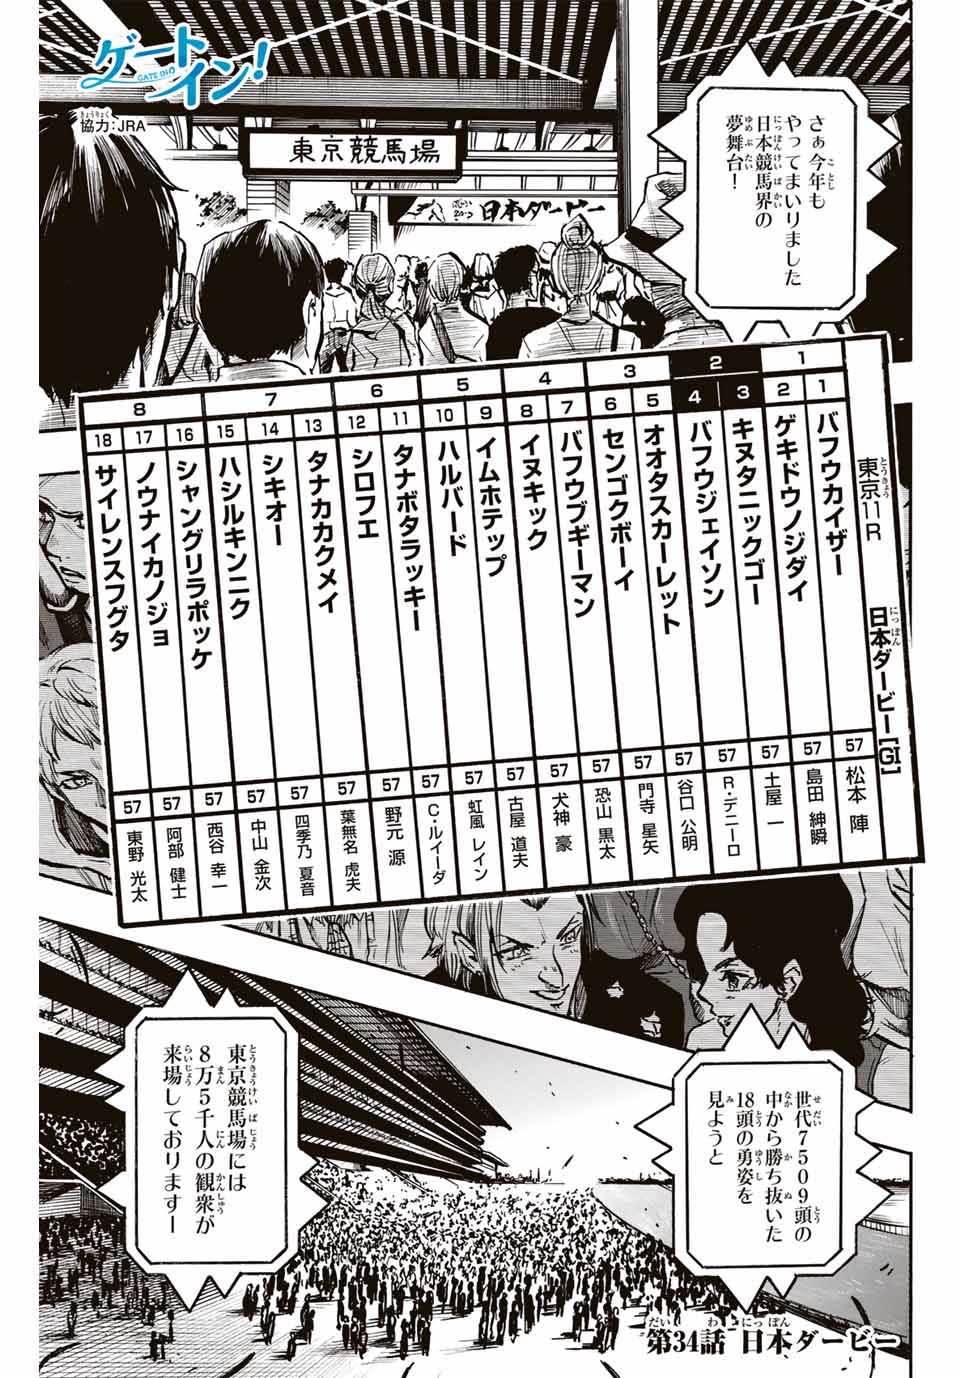 ゲートイン!
GATE INO
きょうりょく
協力:JRA
さぁ今年も
ことし
やってまいりました
日本競馬界の
にっぽんけいばかい
夢舞台!
ゆめぶたい
東京競馬場
日本ダービー
東京11R
とうきょう
日本ダービー[GI]
にっぽん
1 1 バフウカイザー 57 松本 陣
2 ゲキドウノジダイ 57 島田 紳瞬
2 3 キヌタニックゴー 57 土屋 一
4 バフウジェイソン 57 R・デニーロ
3 5 オオタスカーレット 57 谷口 公明
6 センゴクボーイ 57 門寺 星矢
4 7 バフウブギーマン 57 恐山 黒太
8 イヌキック 57 犬神 豪
5 9 イムホテップ 57 古屋 道夫
10 ハルバード 57 虹風 レイン
6 11 タナボタラッキー 57 C・ルイーダ
12 シロフエ 57 野元 源
7 13 タナカカクメイ 57 葉無名 虎夫
14 シキオー 57 四季乃 夏音
15 ハシルキンニク 57 中山 金次
8 16 シャングリラポッケ 57 西谷 幸一
17 ノウナイカノジョ 57 阿部 健士
18 サイレンスフグタ 57 東野 光太
世代7509頭の
せだい とう
中から勝ち抜いた
なか か ぬ
18頭の勇姿を
とう ゆうし
見ようと
み
東京競馬場には
とうきょうけいばじょう
8万5千人の観衆が
まん にん かんしゅう
来場しておりますー
らいじょう
だい わ にっぽん
第34話 日本ダービー